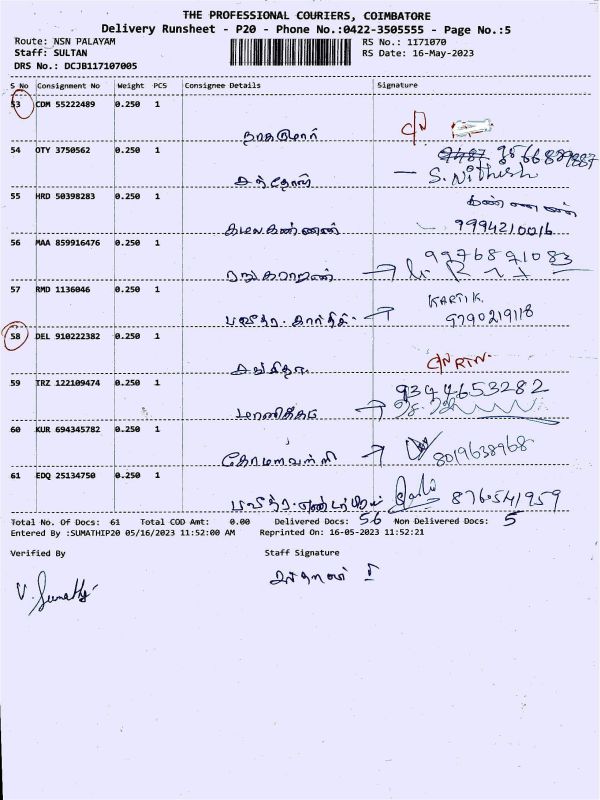 THE PROFESSIONAL COURIERS, COIMBATORE
Delivery Runsheet - P20 - Phone No.:0422-3505555 - Page No.:5
Route: NSN PALAYAM RS No.: 1171070
Staff: SULTAN RS Date: 16-May-2023
DRS No.: DCJB117107005
S No Consignment No Weight PCS Consignee Details Signature
53 CDM 55222489 0.250 1
நாககுமார்
54 OTY 3750562 0.250 1
சந்தோஸ் S. Nithish
55 HRD 50398283 0.250 1 கண்ணன்
கமலகண்ணன் 9994210016
56 MAA 859916476 0.250 1
57 RMD 1136046 0.250 1 KARTIK
பவித்ரா கார்திக் 9790219118
58 DEL 910222382 0.250 1
C/N RTN.
59 IRZ 122109474 0.250 1 9344653282
மாணிக்கம்
60 KUR 694345782 0.250 1
கோமளவள்ளி 8019638968
61 EDQ 25134750 0.250 1
8760541959
Total No. Of Docs: 61 Total COD Amt: 0.00 Delivered Docs: 56 Non Delivered Docs: 5
Entered By :SUMATHIP20 05/16/2023 11:52:00 AM Reprinted On: 16-05-2023 11:52:21
Verified By Staff Signature
V. Sumathi சுல்தான்